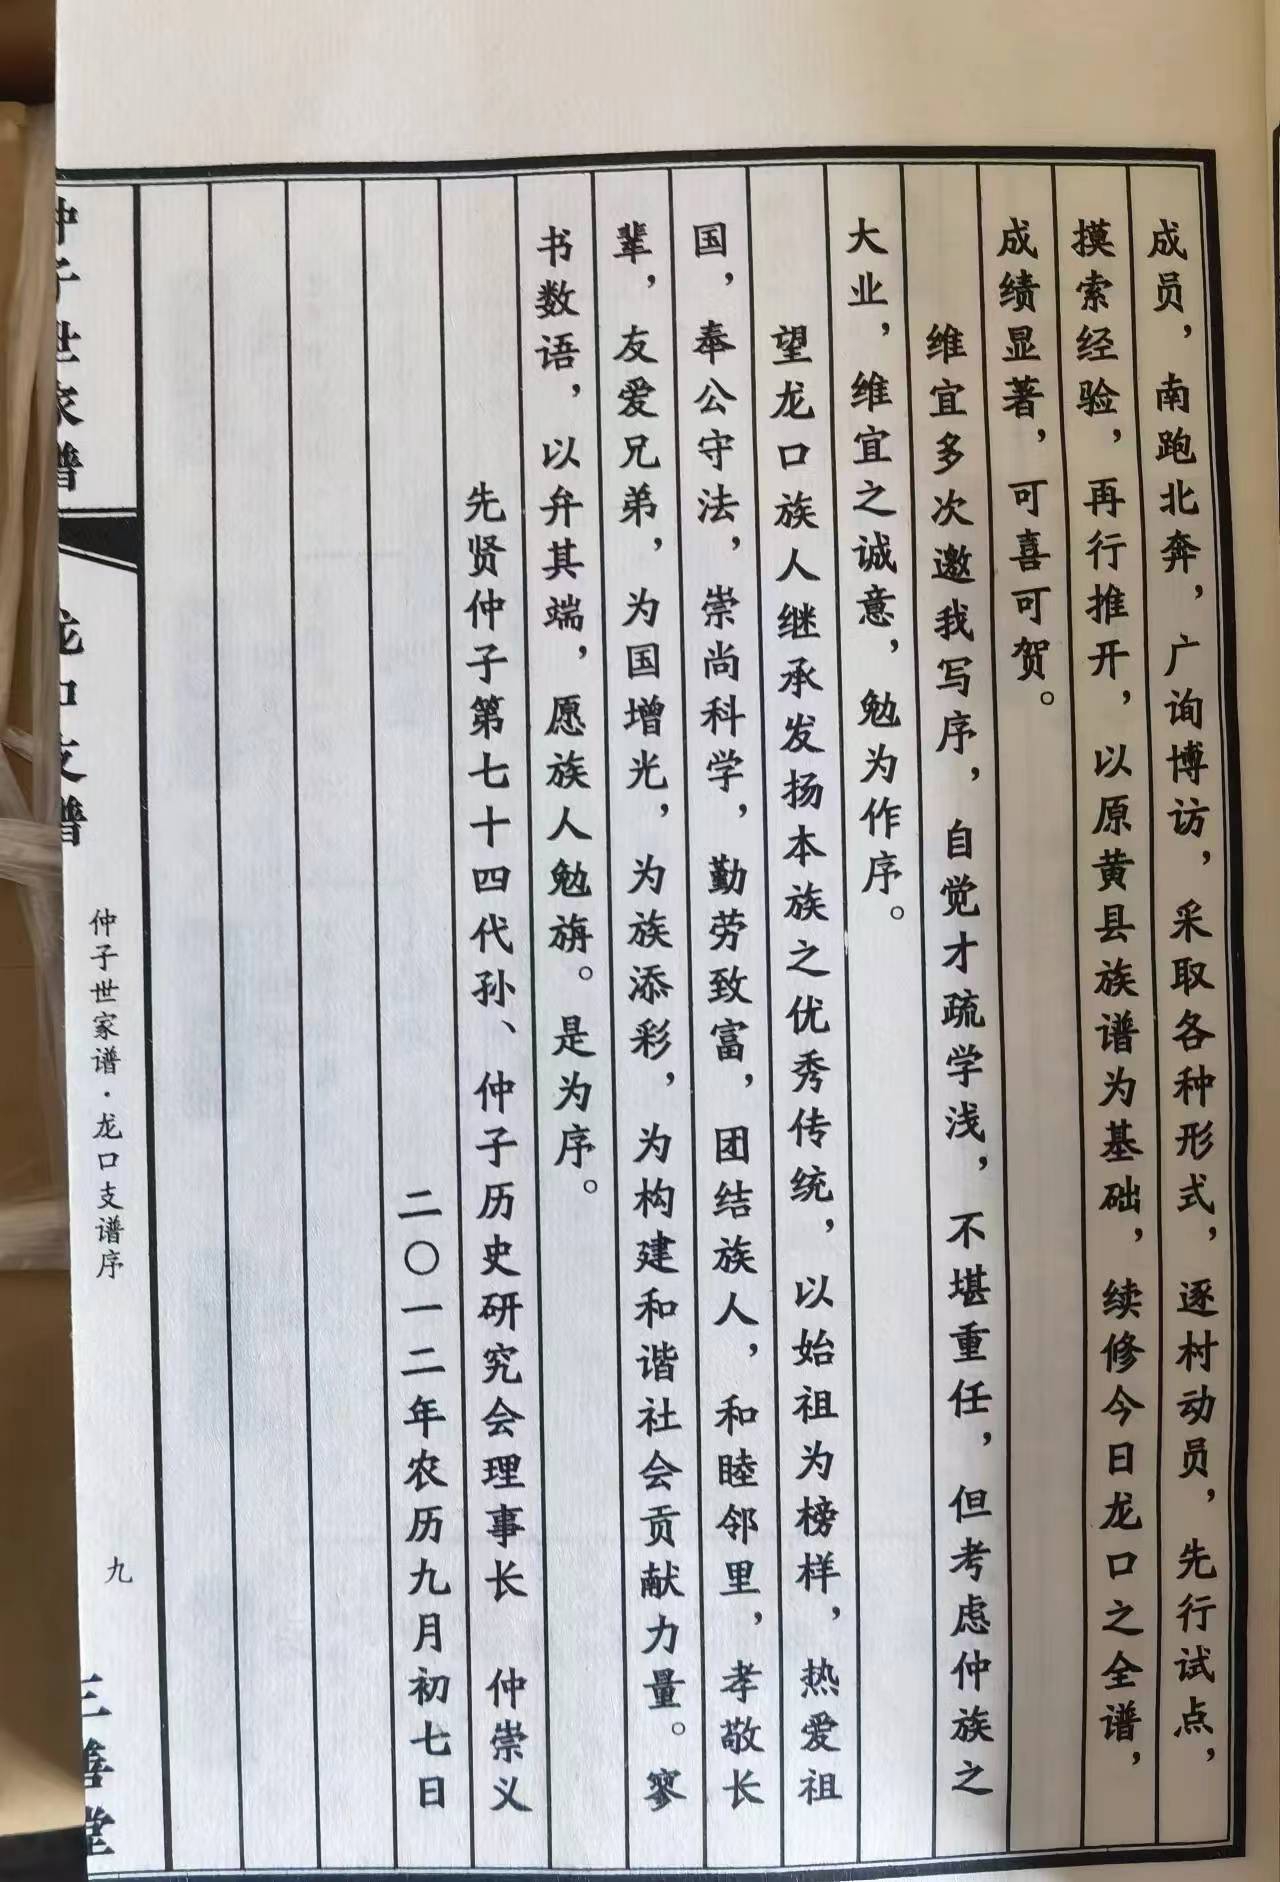 成员，南跑北奔，广询博访，采取各种形式，逐村动员，先行试点，
摸索经验，再行推开，以原黄县族谱为基础，续修今日龙口之全谱，
成绩显著，可喜可贺。
维宜多次邀我写序，自觉才疏学浅，不堪重任，但考虑仲族之
大业，维宜之诚意，勉为作序。
望龙口族人继承发扬本族之优秀传统，以始祖为榜样，热爱祖
国，奉公守法，崇尚科学，勤劳致富，团结族人，和睦邻里，孝敬长
辈，友爱兄弟，为国增光，为族添彩，为构建和谐社会贡献力量。寥
书数语，以弁其端，愿族人勉旃。是为序。
先贤仲子第七十四代孙、仲子历史研究会理事长　仲崇义
二〇一二年农历九月初七日
仲子世家谱
龙口支谱
仲子世家谱·龙口支谱序
九
三善堂